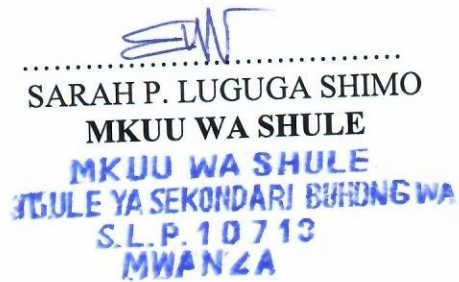 SARAH P. LUGUGA SHIMO
MKUU WA SHULE
MKUU WA SHULE
YA SEKONDARI BUHONGWA
S.L.P. 10713
MWANZA